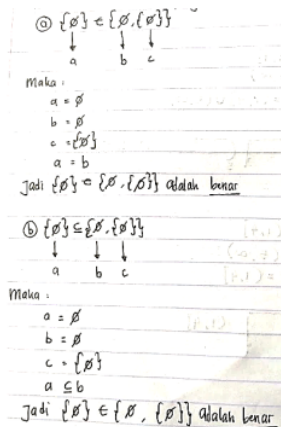 ⓐ {∅} ∈ {∅, {∅}}
a b c
Maka :
a = ∅
b = ∅
c = {∅}
a = b
Jadi {∅} ∈ {∅, {∅}} adalah benar
ⓑ {∅} ⊆ {∅, {∅}}
a b c
Maka :
a = ∅
b = ∅
c = {∅}
a ⊆ b
Jadi {∅} ∈ {∅, {∅}} adalah benar